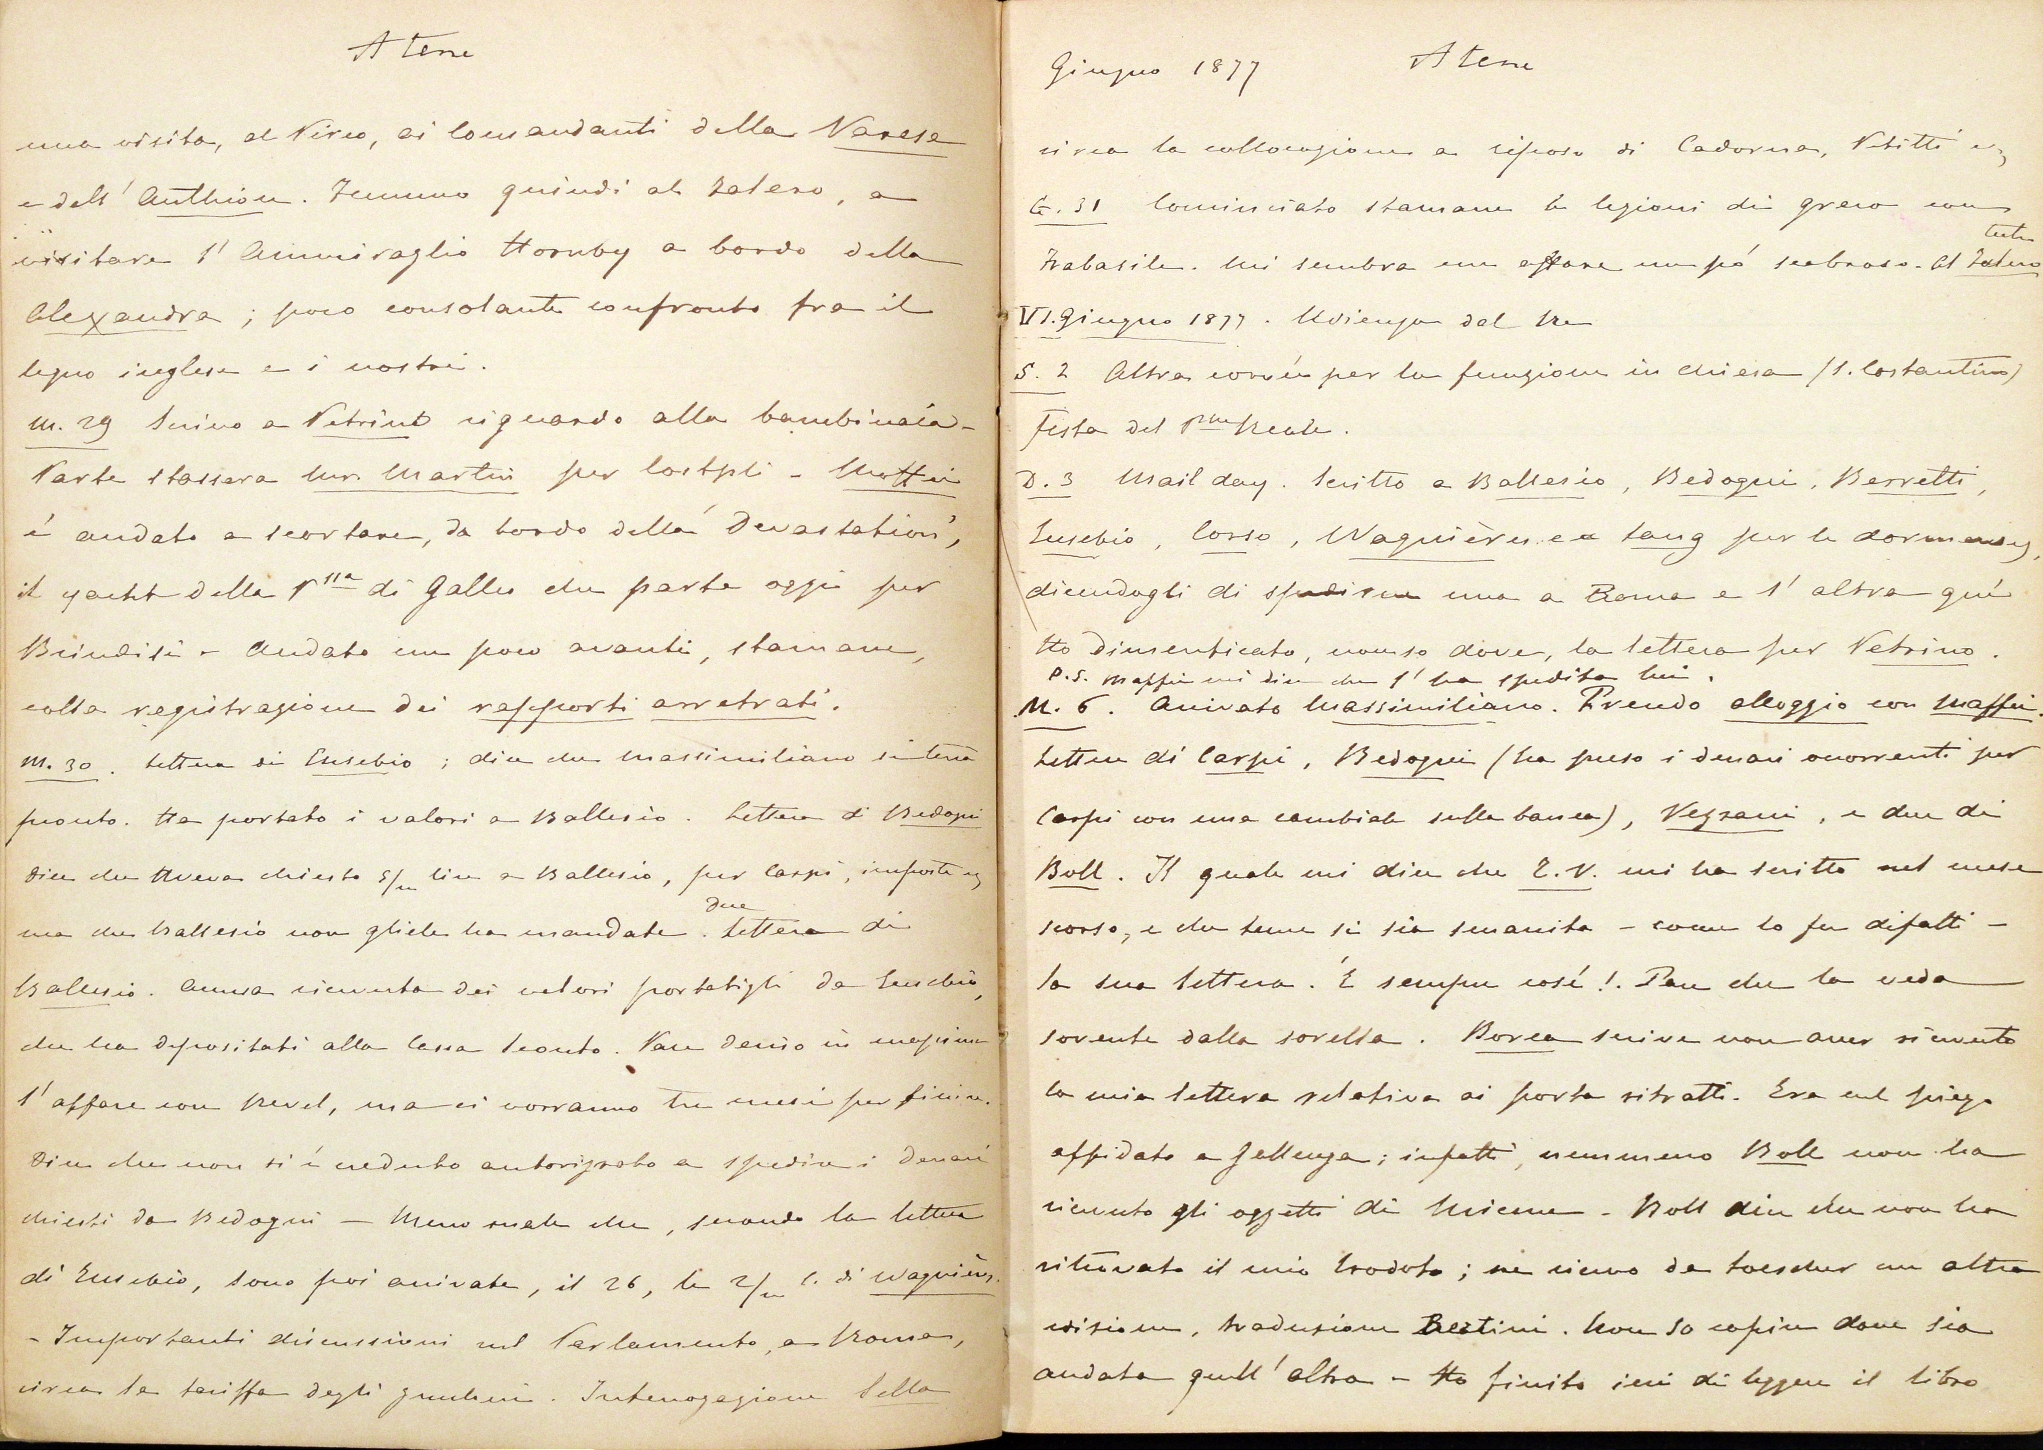 Atene
una visita, al Pireo, ai Comandanti della Varese
e dell' Authion. Fummo quindi al Falero, a
visitare l'Ammiraglio Hornby a bordo della
Alexandra; poco consolante confronto fra il
legno inglese e i nostri.
M. 29 Scrivo a Petrino riguardo alla bambinaia -
Parte stassera Mr. Martin per Costpli - Maffei
é andato a scortare, da bordo della 'Devastation',
il yacht della Pssa di Galles che parte oggi per
Brindisi - Andato un poco avanti, stamane,
colla registrazione dei rapporti arretrati.
M. 30. Lettera di Eusebio; dice che Massimiliano si terrà
pronto. Ha portato i valori a Ballesio. Lettera di Bedogni
Dice che aveva chiesto 5/m lire a Ballesio, per Carpi,
ma che Ballesio non gliele ha mandate. due Lettere di
Ballesio. Accusa ricevuta dei valori portatigli da Eusebio,
che ha depositati alla Cassa Sconto. Pare deciso in massima
l'affare con Revel, ma ci vorranno tre mesi per finire.
Dice che non si é creduto autorizzato a spedire i denari
chiesti da Bedogni - Meno male che, secondo la lettera
di Eusebio, sono poi arrivate, il 26, le 2/m l. di Wagnière.
- Importanti discussioni nel Parlamento, a Roma,
circa la tariffa degli zuccheri. Interrogazione Sella
Giugno 1877 Atene
circa la collocazione a riposo di Cadorna, Petitti
G. 31 Cominciato stamane le lezioni di greco con
Trabasile. Mi sembra un affare un pó scabroso. Al Falero
VI. Giugno 1877. Udienza dal Re
S. 2 Altra per la funzione in chiesa (S. Costantino)
Festa del Pcipe Reale.
D. 3 Mail day. Scritto a Ballesio, Bedogni, Berretti,
Eusebio, Corso, Wagnière e a Lang per le
dicendogli di spedirne una a Roma e l'altra quí
Ho dimenticato, non so dove, la lettera per Petrino.
P.S. Maffei mi dice che l'ha spedita lui.
M. 6. Arrivato Massimiliano. Prendo alloggio con Maffei.
Lettere di Carpi, Bedogni (ha preso i denari occorrenti per
Carpi con una cambiale sulla banca), Vezzani, e due di
Boll. Il quale mi dice che E.V. mi ha scritto nel mese
scorso, e che teme si sia smarrita - come lo fu difatti -
la sua lettera. É sempre cosí! Pare che la veda
sovente dalla sorella. Borea scrive non aver ricevuto
la mia lettera relativa ai porta ritratti. Era nel piego
affidato a Gallenga; infatti, nemmeno Boll non ha
ricevuto gli oggetti di Micene - Boll dice che non ha
ritrovato il mio Erodoto; ne ricevo da Loescher un altra
edizione, traduzione Bertini. Non so capire dove sia
andata quell'altra - Ho finito ieri di leggere il libro